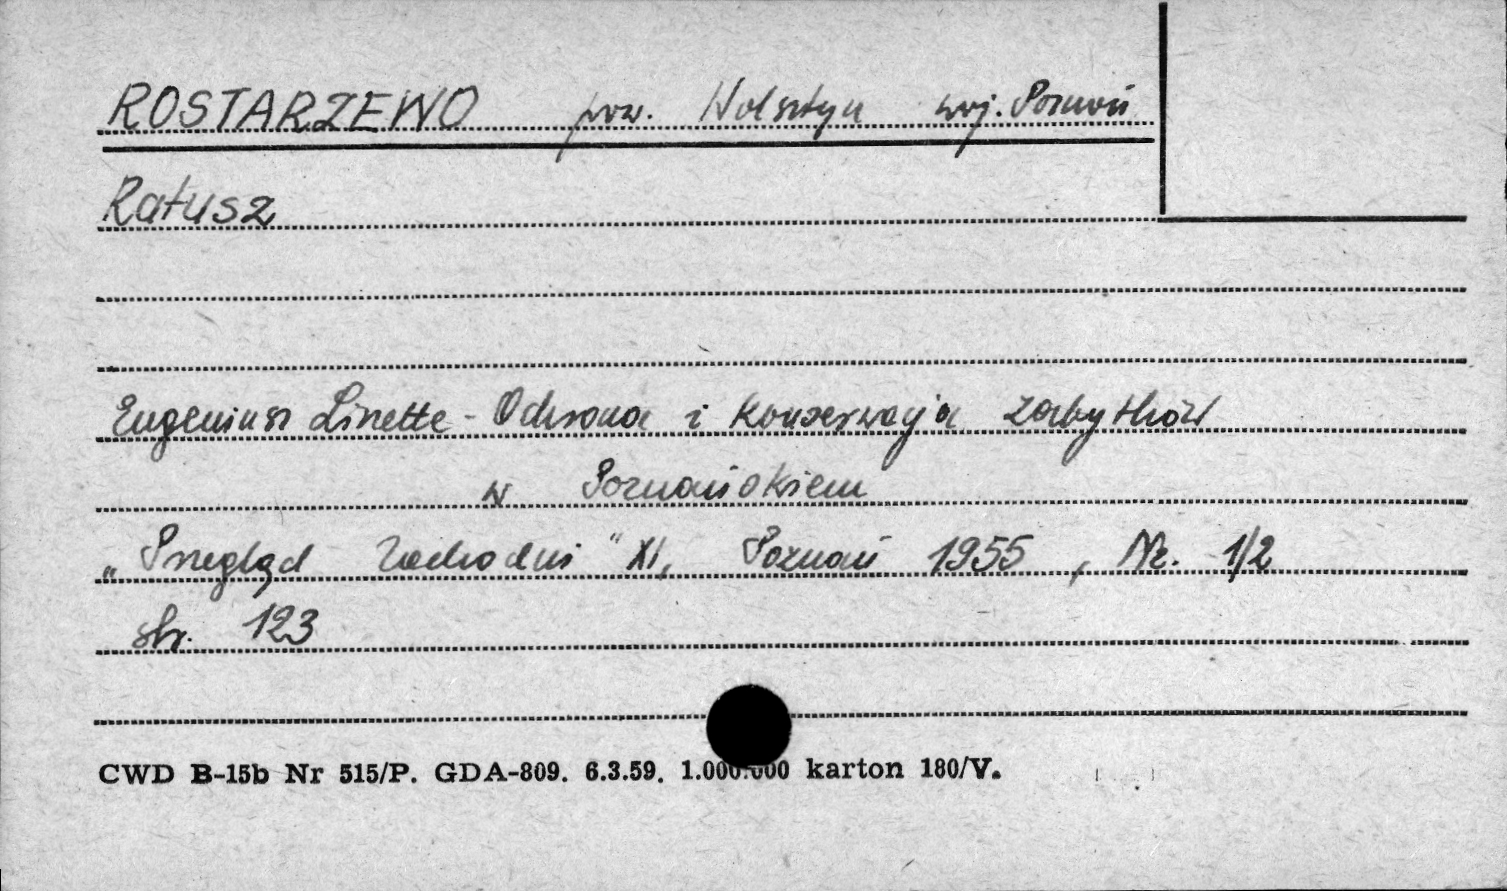 ROSTARZEWO pow. Wolsztyn woj. Poznań
Ratusz
Eugeniusz Linette - Ochrona i konserwacja zabytków
w Poznańskiem
„Przegląd Zachodni" XI, Poznań 1955, Nr. 1/2
str. 123
CWD B-15b Nr 515/P. GDA-809. 6.3.59. 1.000.000 karton 180/V.